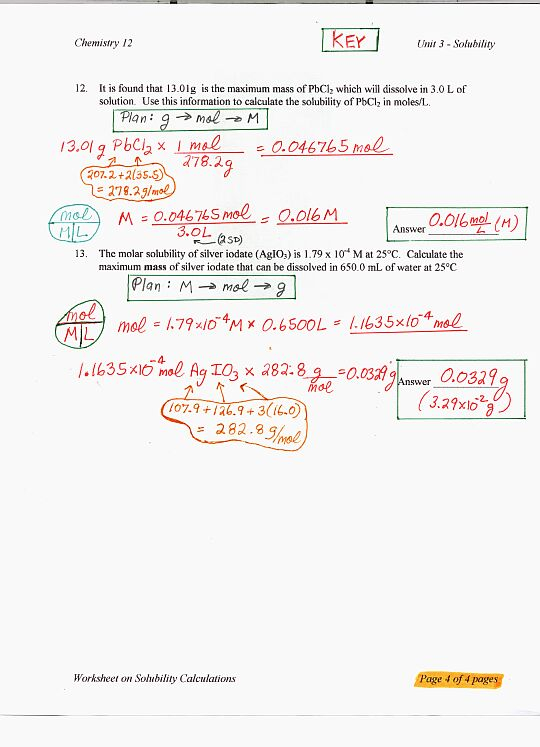 Chemistry 12 KEY Unit 3 - Solubility
12. It is found that 13.01g is the maximum mass of PbCl₂ which will dissolve in 3.0 L of
solution. Use this information to calculate the solubility of PbCl₂ in moles/L.
Plan: g → mol → M
13.01 g PbCl₂ × 1 mol / 278.2g = 0.046765 mol
207.2 + 2(35.5)
= 278.2 g/mol
mol
M L
M = 0.046765 mol / 3.0L = 0.016 M
(2SD)
Answer 0.016 mol/L (M)
13. The molar solubility of silver iodate (AgIO₃) is 1.79 x 10⁻⁴ M at 25°C. Calculate the
maximum mass of silver iodate that can be dissolved in 650.0 mL of water at 25°C
Plan: M → mol → g
mol
M L
mol = 1.79×10⁻⁴ M × 0.6500L = 1.1635×10⁻⁴ mol
1.1635×10⁻⁴ mol AgIO₃ × 282.8 g/mol = 0.0329 g
107.9 + 126.9 + 3(16.0)
= 282.8 g/mol
Answer 0.0329 g
(3.29×10⁻² g)
Worksheet on Solubility Calculations Page 4 of 4 pages